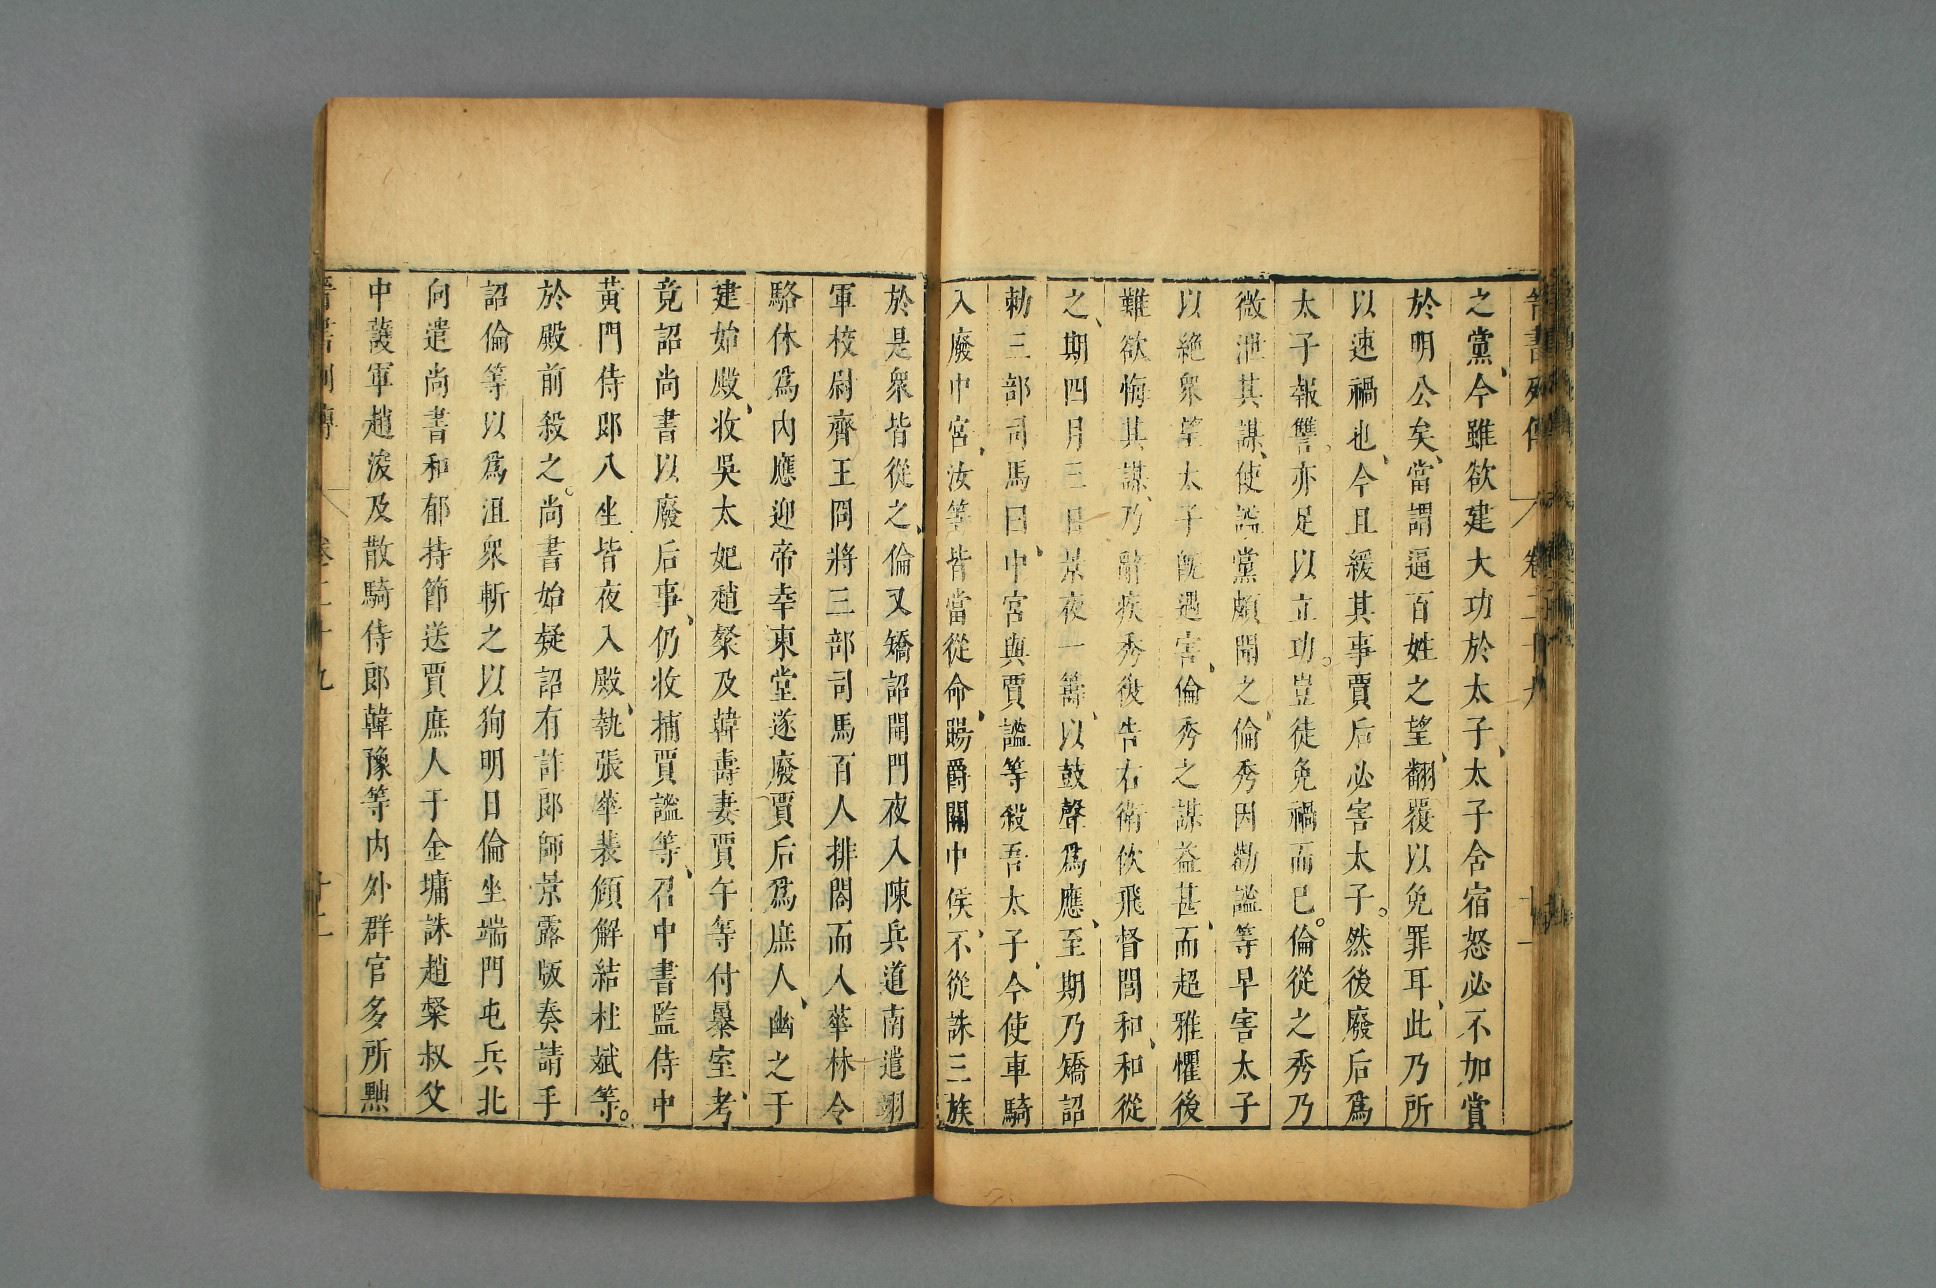 晉書列傳 卷二十九 十一
之黨、今雖欲建大功於太子、太子含宿怒必不加賞
於明公矣、當謂逼百姓之望、翻覆以免罪耳、此乃所
以速禍也、今且緩其事賈后必害太子。然後廢后爲
太子報讐。亦足以立功。豈徒免禍而已。倫從之秀乃
微泄其謀、使謐黨頗聞之、倫秀因勸謐等早害太子
以絶衆望太子旣遇害、倫秀之謀益甚、而超雅懼後
難欲悔其謀、乃辭疾秀復告右衛佽飛督閭和、和從
之、期四月三日景夜一籌、以鼓聲爲應、至期乃矯詔
勅三部司馬曰、中宮與賈謐等殺吾太子、今使車騎
入廢中宮、汝等皆當從命、賜爵關中侯、不從誅三族
於是衆皆從之、倫又矯詔開門夜入陳兵道南遣翊
軍校尉齊王冏將三部司馬百人排閤而入華林令
駱休爲內應迎帝幸東堂遂廢賈后爲庶人、幽之于
建始殿、收吳太妃趙粲及韓壽妻賈午等付暴室考、
竟詔尚書以廢后事、仍收捕賈謐等、召中書監侍中
黃門侍郎八坐皆夜入殿、執張華裴頠解結杜斌等。
於殿前殺之。尚書始疑詔有詐郎師景露版奏請手
詔倫等以爲沮衆斬之以狥明日倫坐端門屯兵北
向遣尚書和郁持節送賈庶人于金墉誅趙粲叔父
中護軍趙浚及散騎侍郎韓豫等內外群官多所黜
晉書列傳 卷二十九 十二